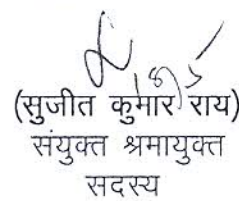 (सुजीत कुमार राय)
संयुक्त श्रमायुक्त
सदस्य